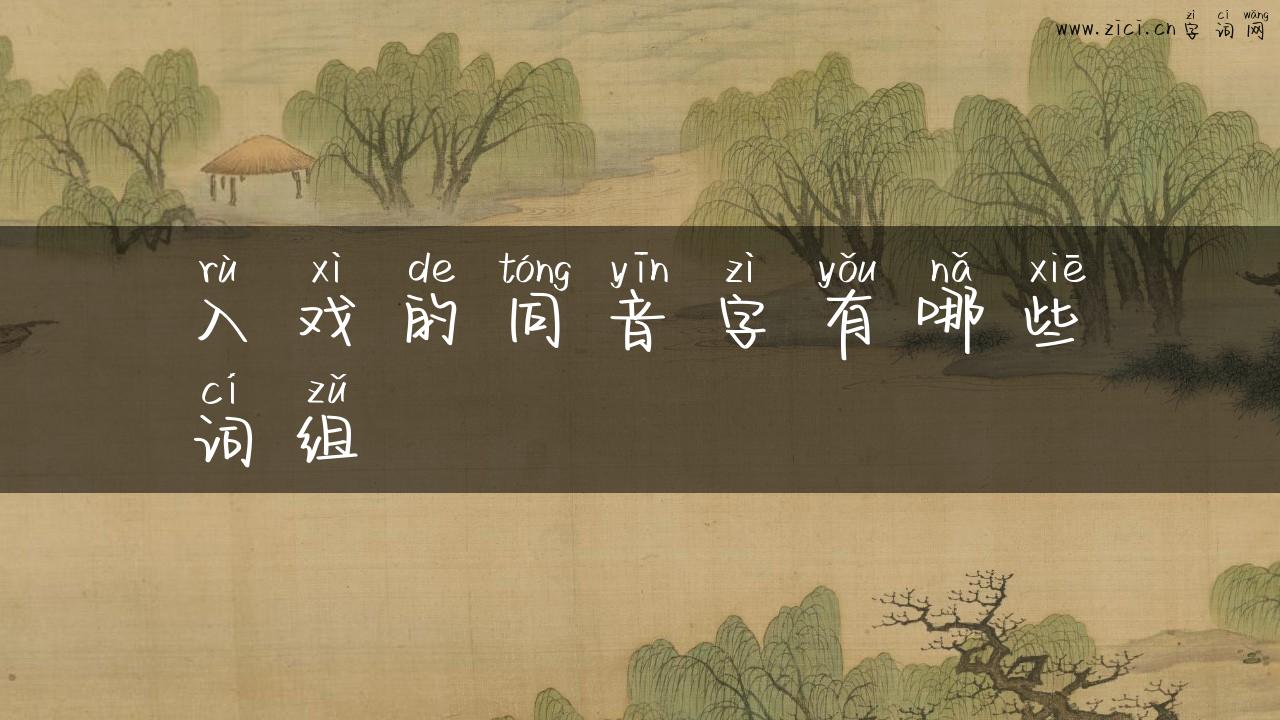 zì cí wǎng
www.zici.cn 字 词 网
rù xì de tóng yīn zì yǒu nǎ xiē
入 戏 的 同 音 字 有 哪 些
cí zǔ
词 组